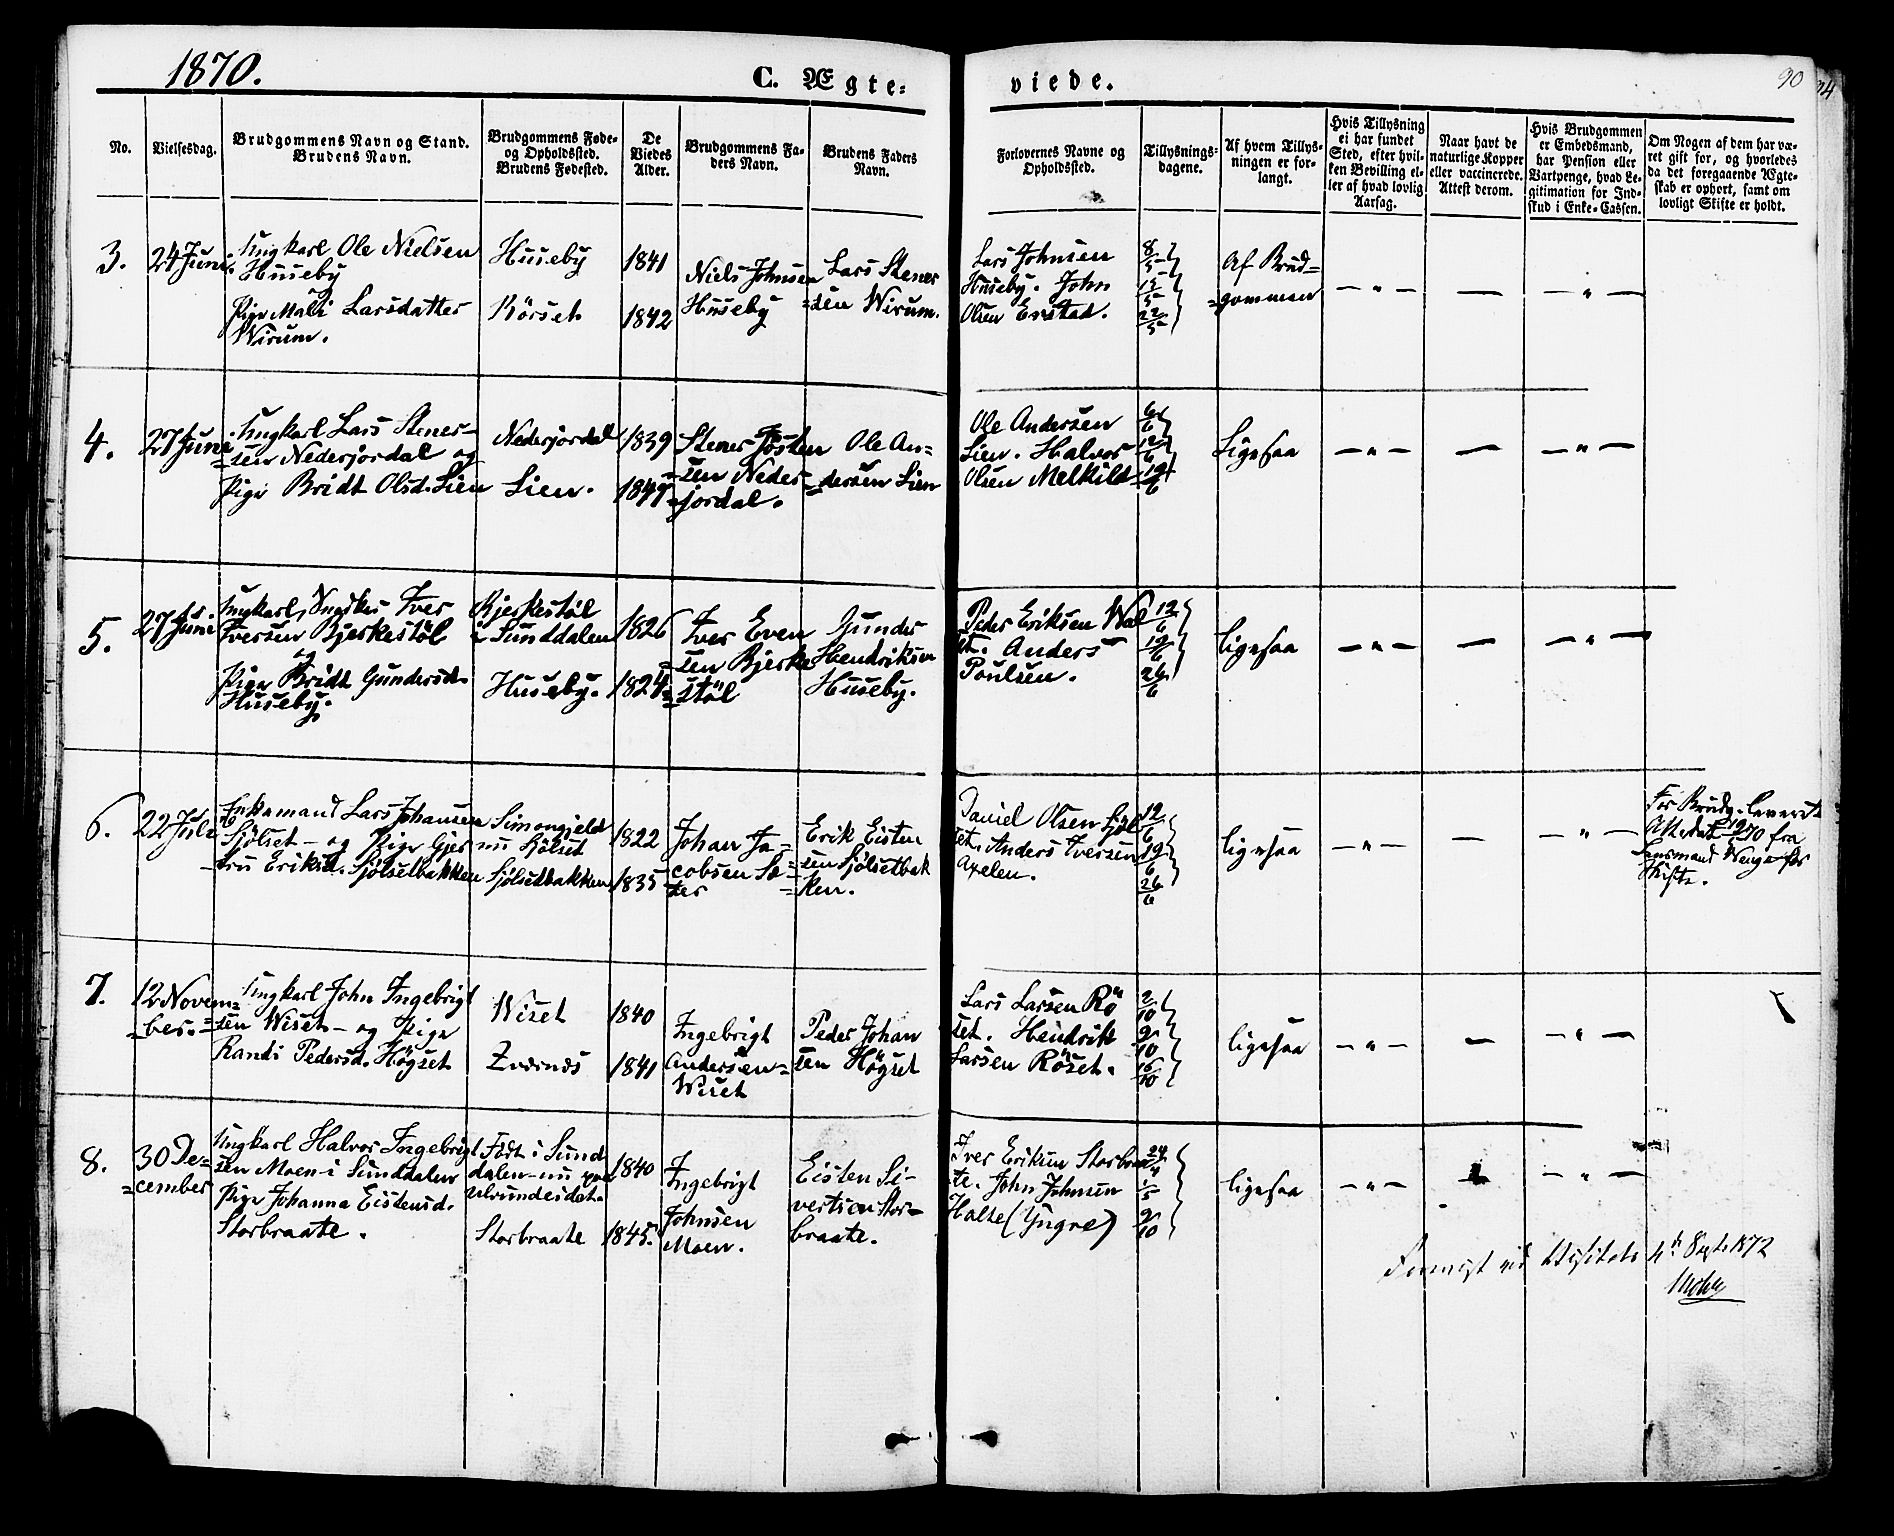 1870.
C. Ægte-
viede.
90
No.
Vielsesdag.
Brudgommens Navn og Stand.
Brudens Navn.
Brudgommens Føde-
og Opholdssted.
Brudens Fødested.
De
Viedes
Alder.
Brudgommens Fa-
ders Navn.
Brudens Faders
Navn.
Forlovernes Navne og
Opholdssted.
Tillysnings-
dagene.
Af hvem Tillys-
ningen er for-
langt.
Hvis Tillysning
ei har fundet
Sted, efter hvil-
ken Bevilling el-
ler af hvad lovlig
Aarsag.
Naar havt de
naturlige Kopper
eller vaccinerede.
Attest derom.
Hvis Brudgommen
er Embedsmand,
har Pension eller
Vartpenge, hvad Le-
gitimation for Ind-
skud i Enke-Cassen.
Om Nogen af dem har væ-
ret gift før, og hvorledes
da det foregaaende Ægte-
skab er ophørt, samt om
lovligt Skifte er holdt.
3.
24 Juni.
Ungkarl Ole Nielsen
Huseby
og
Pige Mali Larsdatter
Wirum.
Huseby
Rörset
1841
1842
Niels Johnsen
Huseby
Lars Stener
=sen Wirum.
Lars Johnsen
Huseby. John
Olsen Erstad.
8/5
15/5
22/5
Af Brud=
=gommen
— " —
—
— " —
4.
27 Juni
Ungkarl Lars Stener-
=sen Nederjordal og
Pige Bridt Olsd. Lien
Nederjordal
Lien.
1839
1847
Stener Josten
=sen Neder
=jordal.
Ole An-
=dersen Lien
Ole Andersen
Lien. Halvor
Olsen Melkild
6/6
12/6
19/6
Ligesaa
— " —
—
— " —
5.
27 Juni
Ungkarl, Iver
Iversen Bjerkestöl
og
Pige Bridt Gundersd.
Huseby.
Bjerkestöl
i Sunddalen
Huseby.
1826
1824
Iver Even
=sen Bjerke
=stöl
Gunder
Hendriksen
Huseby.
Peder Eriksen Wal
set. Anders
Poulsen.
12/6
19/6
26/6
ligesaa
— " —
—
— " —
6.
22 Juli
Enkemand Lars Johansen
Sjölset — og Pige Gjer
=tru Eriksd. Sjölsetbakken
nu Sjölset
Sjölsetbakken
1822
1835
Johan Ja-
cobsen Sæ=
ter
Erik Eisten
=sen Sjölsetbak
=ken.
Daniel Olsen Sjöl
set. Anders Iversen
Axelen.
12/6
19/6
26/6
ligesaa
— " —
—
— " —
For Brudg. leveret
fra
Lensmand for
Skifte.
7.
12 Novem=
=ber.
Ungkarl John Ingebrigt
=sen Wiset — og Pige
Randi Pedersd. Högset
Wiset
1840
1841
Ingebrigt
Andersen
Wiset
Peder Johan
=sen Högset
Lars Larsen Rö
set. Hendrik
Larsen Röset.
2/10
9/10
16/10
ligesaa
— " —
—
— " —
8.
30 De=
=cember
Ungkarl Halvor Ingebrigt
=sen Moen i Sunddalen
Pige Johanna Eistensd.
Storbraate.
Födt i Sund
dalen — nu paa
Storbraate
1840
1845.
Ingebrigt
Johnsen
Moen.
Eisten Si-
vertsen Stor=
braate.
Iver Eriksen Storbraa
te. John Johnsen
Halse (Yngre)
24/4
1/5
9/10
ligesaa
— " —
—
— " —
ved Visitats 4de Septr 1872